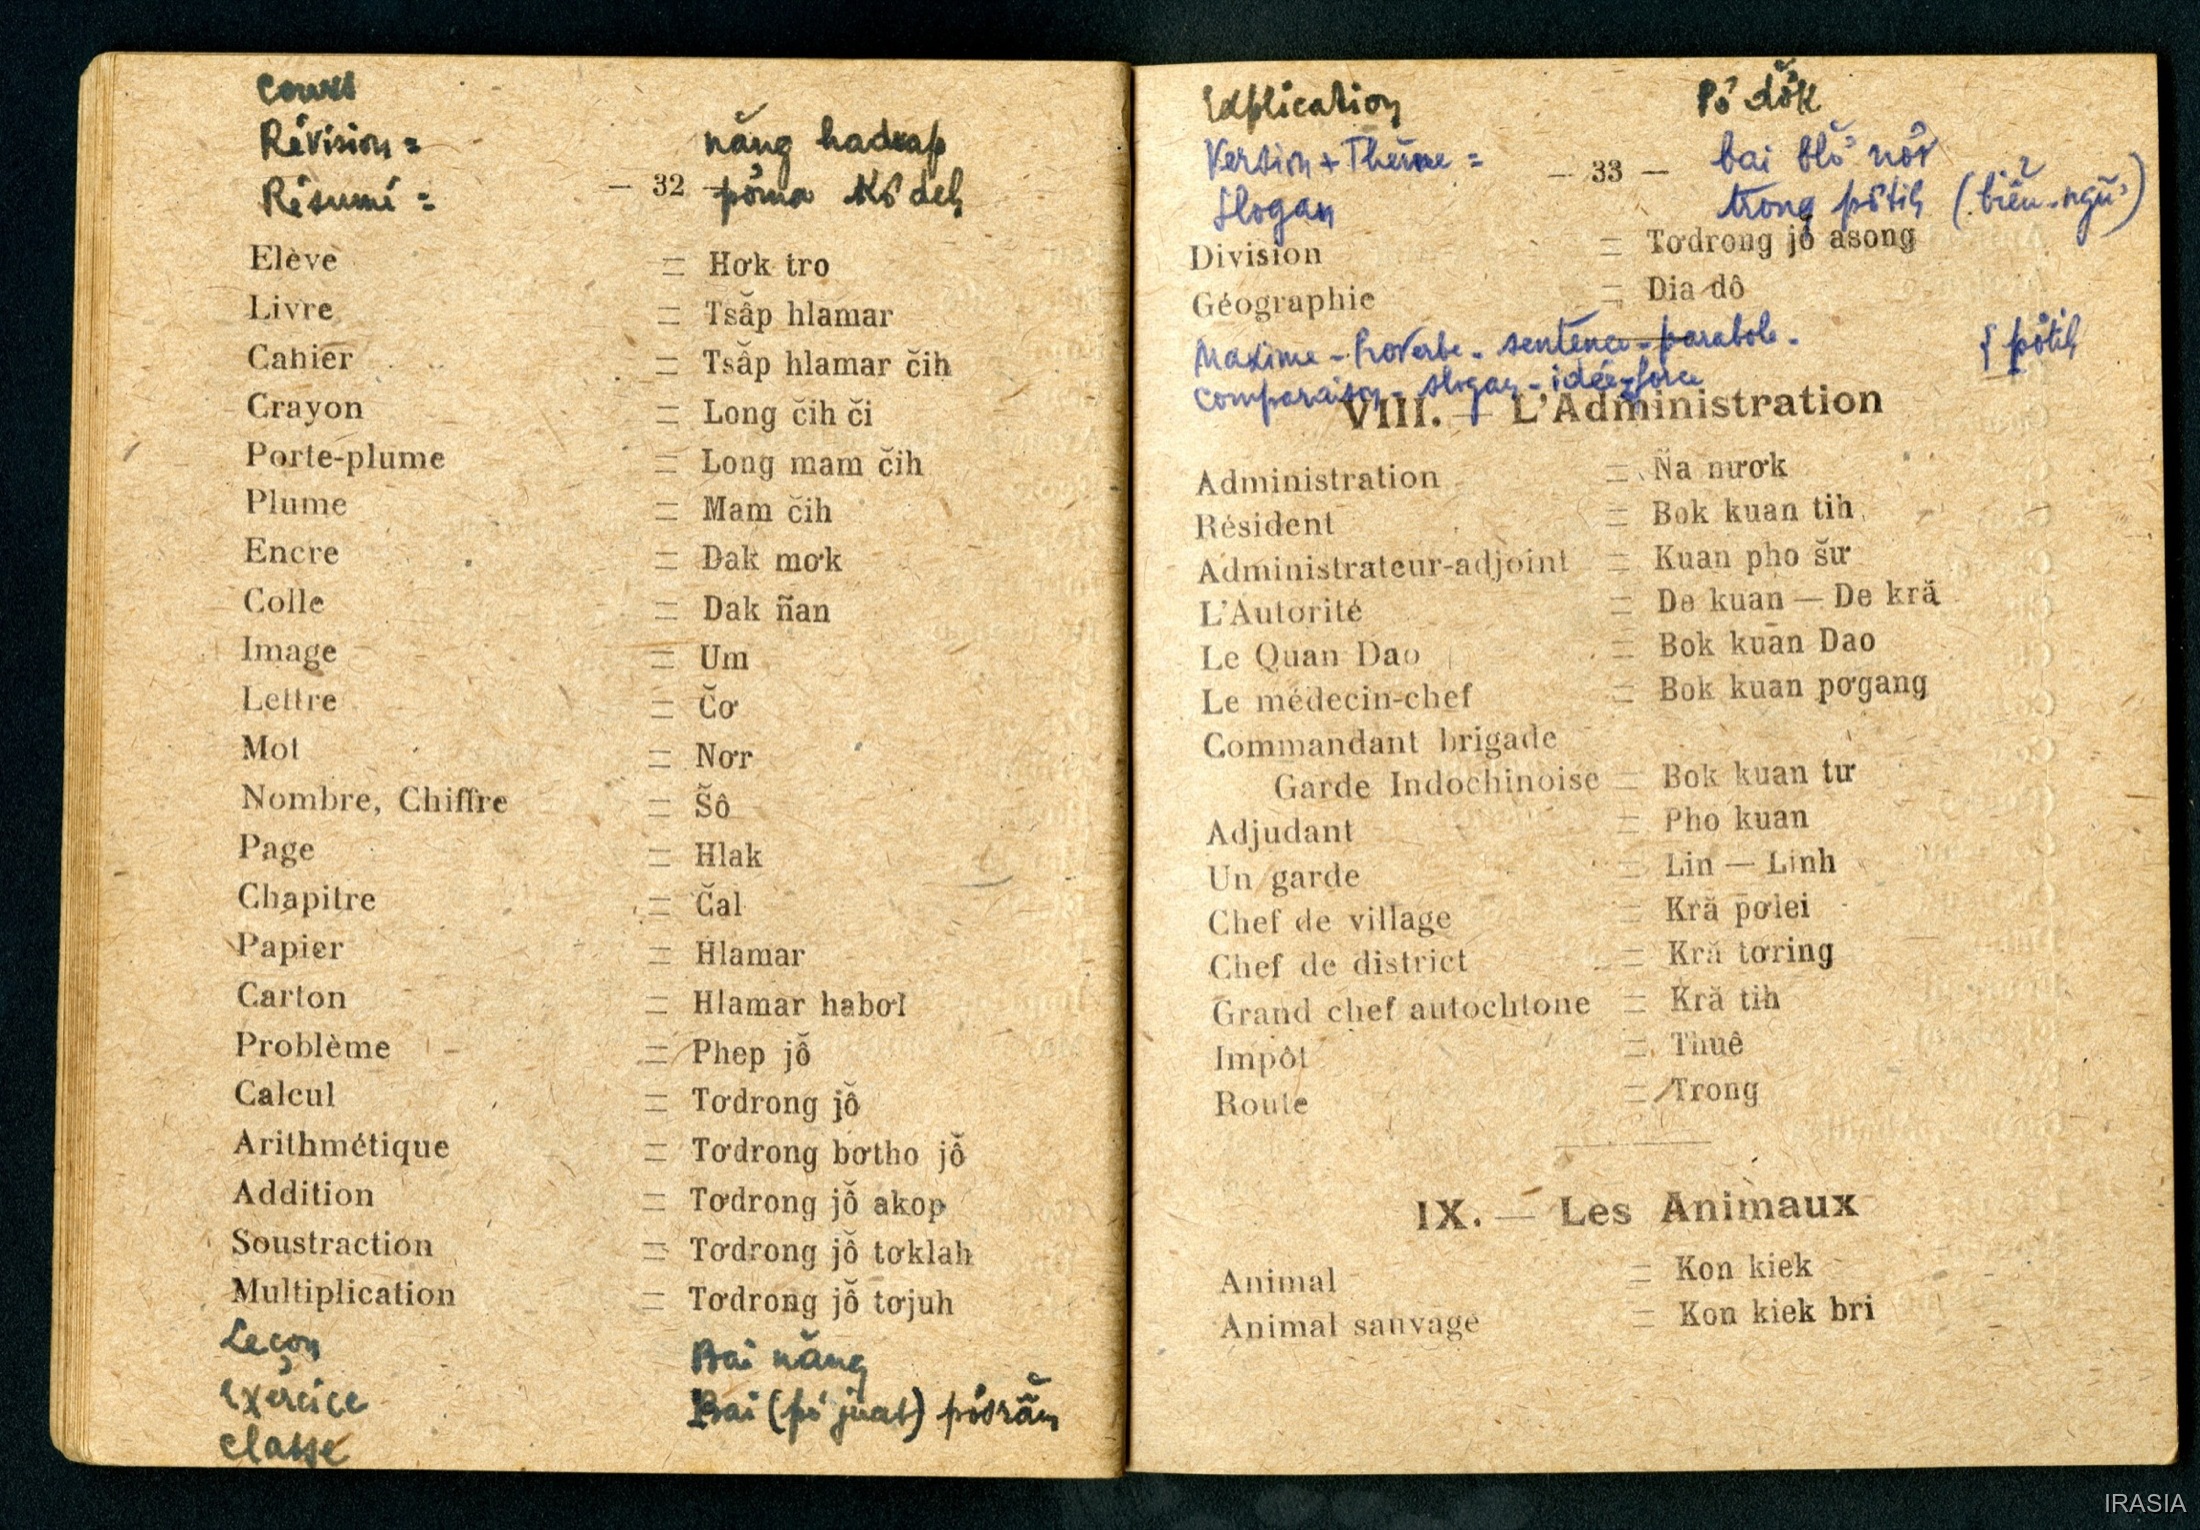 Cours
Révision = năng hadrap
Résumé = pơma kơ deh
— 32 —
Elève = Hơk tro
Livre = Tsâ̆p hlamar
Cahier = Tsâ̆p hlamar čih
Crayon = Long čih či
Porte-plume = Long mam čih
Plume = Mam čih
Encre = Dak mơk
Colle = Dak ñan
Image = Um
Lettre = Čơ
Mot = Nơr
Nombre, Chiffre = Šô
Page = Hlak
Chapitre = Čal
Papier = Hlamar
Carton = Hlamar habơl
Problème = Phep jô̆
Calcul = Tơdrong jô̆
Arithmétique = Tơdrong bơtho jô̆
Addition = Tơdrong jô̆ akop
Soustraction = Tơdrong jô̆ tơklah
Multiplication = Tơdrong jô̆ tơjuh
Leçon Bai năng
Exercice Bai (pơ juat) pơsrăm
Classe
Explication Pơ dŏk
Version + Thème = bai blơ̆ nơr
— 33 —
Slogan trong pơtih (biểu-ngữ)
Division = Tơdrong jô̆ asong
Géographie = Dia dô
Maxime - Proverbe - sentence - parabole - { pơtih
comparaison - slogan - idée-force
VIII. — L'Administration
Administration = Ña nươk
Résident = Bok kuan tih
Administrateur-adjoint = Kuan pho šư
L'Autorité = De kuan — De kră
Le Quan Dao = Bok kuan Dao
Le médecin-chef = Bok kuan pơgang
Commandant brigade
Garde Indochinoise = Bok kuan tư
Adjudant = Pho kuan
Un garde = Lin — Linh
Chef de village = Kră pơlei
Chef de district = Kră tơring
Grand chef autochtone = Kră tih
Impôt = Thuê
Route = Trong
IX. — Les Animaux
Animal = Kon kiek
Animal sauvage = Kon kiek bri
IRASIA